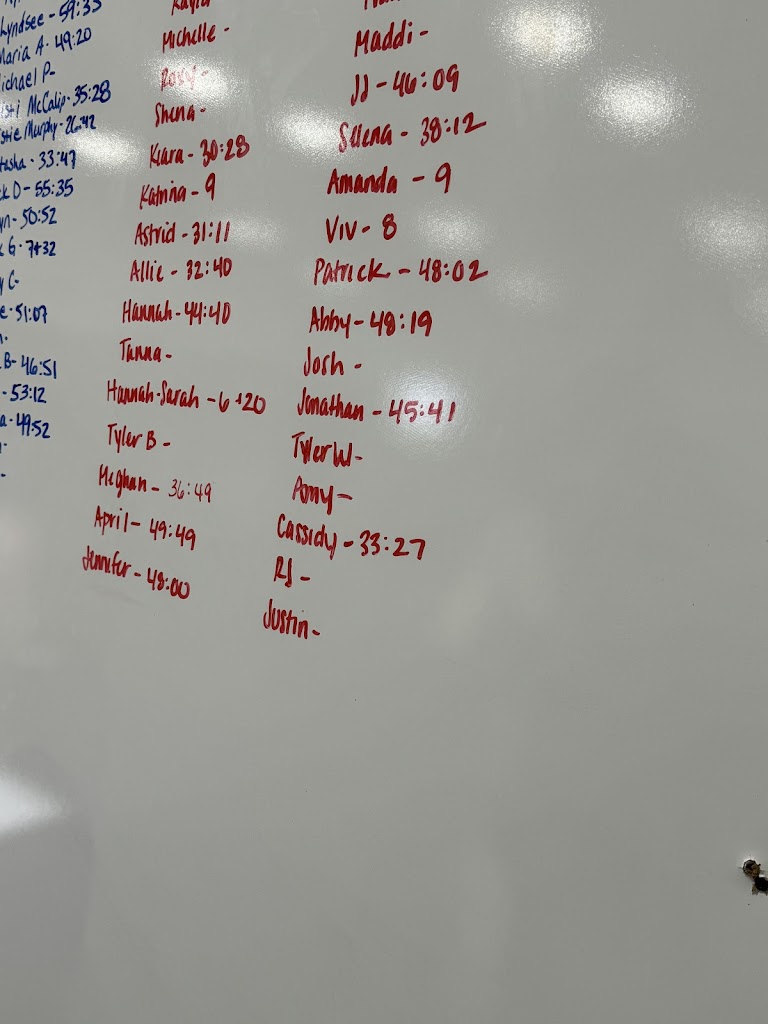 Lyndsee - 59:33
Maria A - 49:20
ichael P-
sti McCalip - 35:28
stie Murphy - 26:42
tasha - 33:47
k D - 55:35
yn - 50:52
k G - 7+32
y C-
e - 51:07
B - 46:51
- 53:12
a - 49:52
Kayla
Michelle -
Roxy -
Shena -
Kiara - 30:28
Katrina - 9
Astrid - 31:11
Allie - 32:40
Hannah - 44:40
Tanna -
Hannah-Sarah - 6+20
Tyler B -
Meghan - 36:49
April - 49:49
Jennifer - 48:00
Maddi -
JJ - 46:09
Selena - 38:12
Amanda - 9
Viv - 8
Patrick - 48:02
Abby - 48:19
Josh -
Jonathan - 45:41
Tyler W -
Amy -
Cassidy - 33:27
RJ -
Justin -